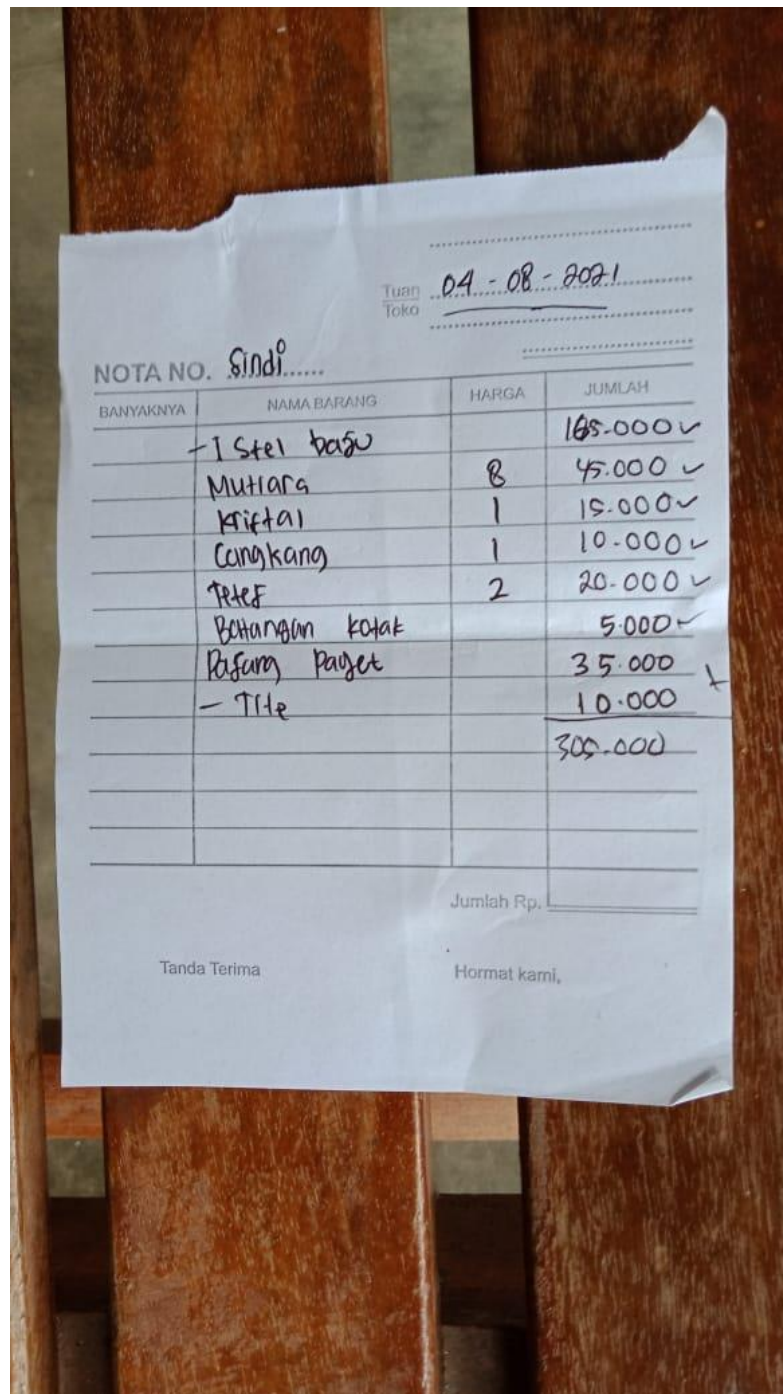 Tuan 04 - 08 - 2021
Toko
NOTA NO. Sindi
BANYAKNYA NAMA BARANG HARGA JUMLAH
- 1 Stel baju 165.000 ✓
Mutiara 8 45.000 ✓
Kristal 1 15.000 ✓
Cangkang 1 10.000 ✓
Tetes 2 20.000 ✓
Batangan kotak 5.000 ✓
Pasang Payet 35.000
- Tile 10.000 +
305.000
Jumlah Rp.
Tanda Terima Hormat kami,